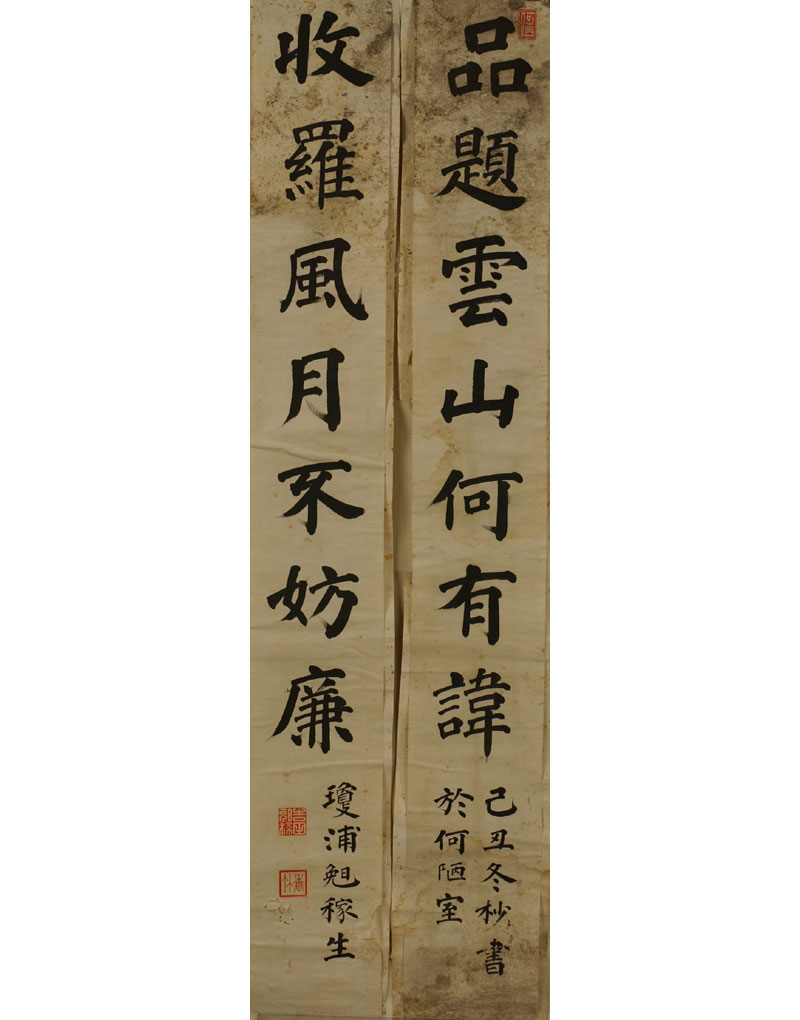 品題雲山何有諱
己丑冬杪書
於何陋室
收羅風月不妨廉
瓊浦
稼生